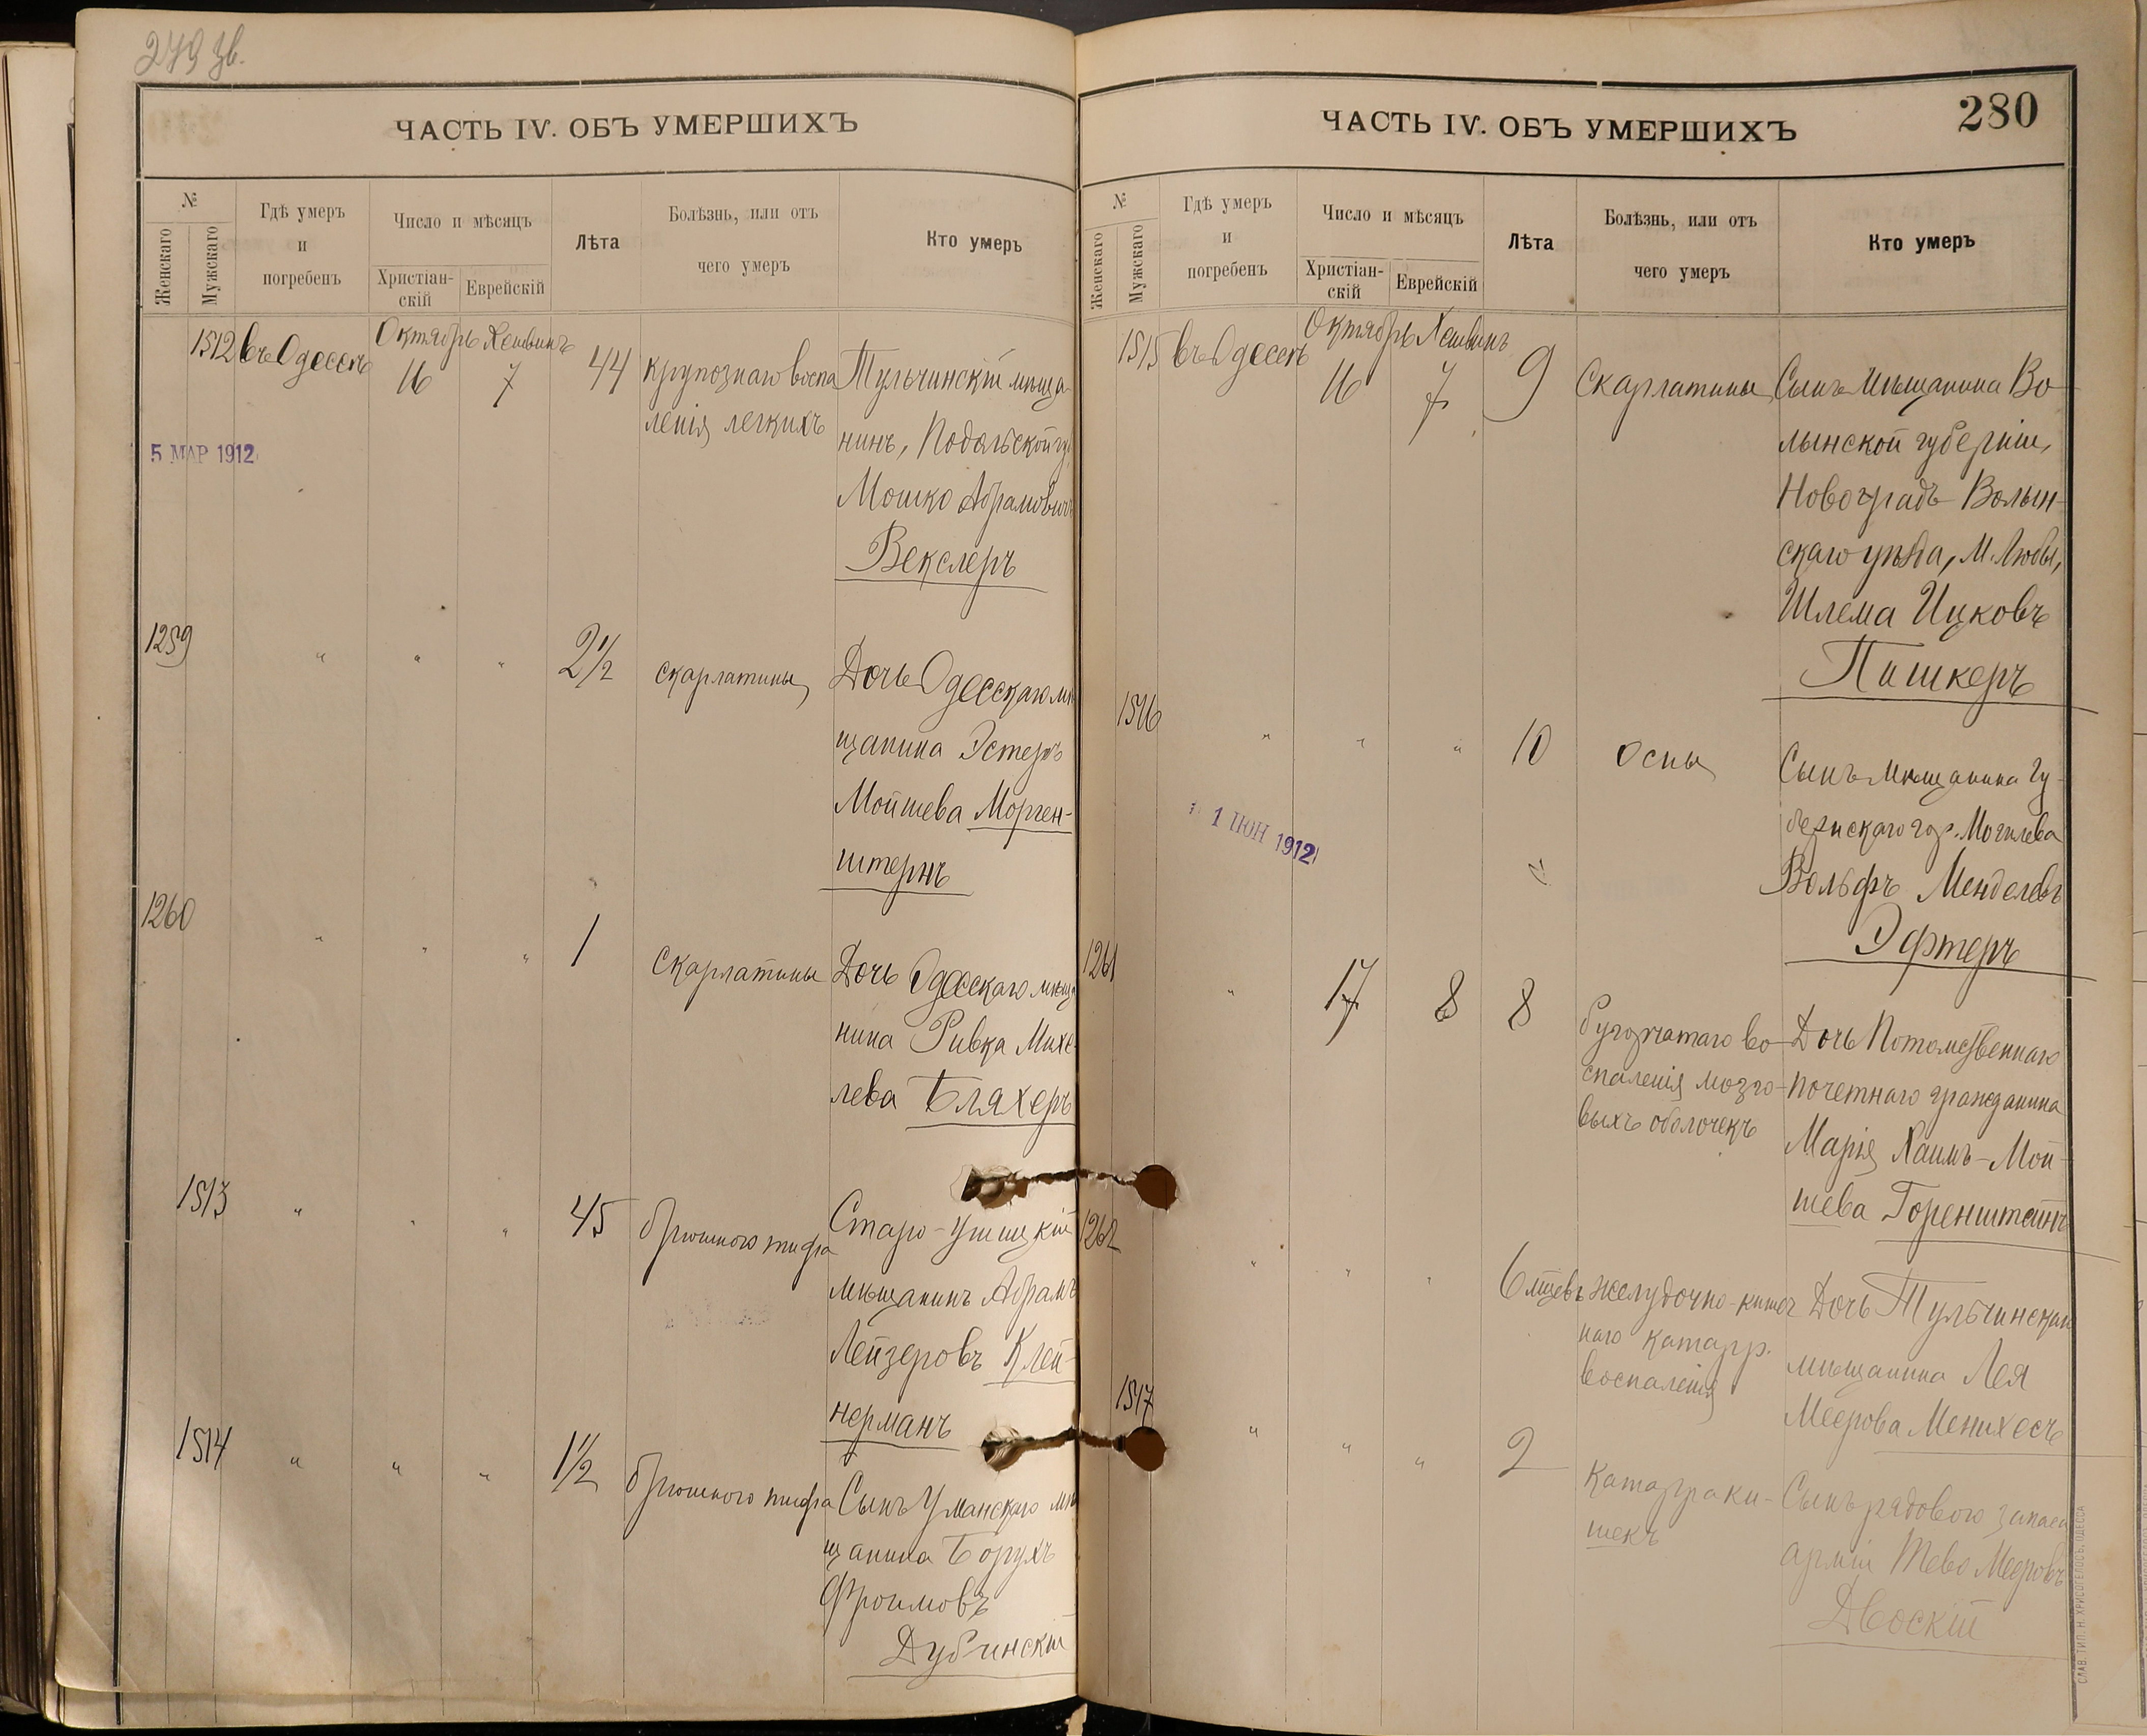 279 зв.
ЧАСТЬ IV. ОБЪ УМЕРШИХЪ
№
Женскаго
Мужскаго
Гдѣ умеръ
и
погребенъ
Число и мѣсяцъ
Христіан-
скій
Еврейскій
Лѣта
Болѣзнь, или отъ
чего умеръ
Кто умеръ
Октябрь Хешвинъ
1512 въ Одессѣ 16 7 44 крупознаго воспа
ленія легкихъ
Тульчинскій мѣща-
нинъ, Подольской гу.
Мошко Абрамовичъ
Векслеръ
5 МАР 1912
1259 " " " 2 1/2 скарлатины
Дочь Одесскаго мѣ
щанина Эстеръ
Мойшева Морген-
штернъ
1260 " " " 1 Скарлатины
Дочь Одесскаго мѣща
нина Ривка Михе-
лева Бляхеръ
1513 " " " 45 брюшного тифа
Старо-Ушицкій
мѣщанинъ Абрамъ
Лейзеровъ Клей-
нерманъ
1514 " " " 1 1/2 брюшного тифа
Сынъ Уманскаго мѣ
щанина Борухъ
Фроимовъ
Дубинскій
ЧАСТЬ IV. ОБЪ УМЕРШИХЪ
280
№
Женскаго
Мужскаго
Гдѣ умеръ
и
погребенъ
Число и мѣсяцъ
Христіан-
скій
Еврейскій
Лѣта
Болѣзнь, или отъ
чего умеръ
Кто умеръ
Октябрь Хешвинъ
1515 въ Одессѣ 16 7 9 Скарлатины
Сынъ мѣщанина Во
лынской губерніи,
Новоградъ-Волын-
скаго уѣзда, М. Любы,
Шлема Ицковъ
Пишкеръ
1516 " " " 10 Оспы
Сынъ мѣщанина Гу-
бернскаго гор. Могилева
Вольфъ Менделевъ
Эфтеръ
1 ІЮН 1912
1261 " 17 8 8 бугорчатаго во-
спаленія мозго-
выхъ оболочекъ
Дочь Потомственнаго
почетнаго гражданина
Марія Хаимъ-Мой-
шева Горенштейнъ
1262 " " " 6 мѣцевъ желудочно-кишеч
наго катарр.
воспаленія
Дочь Тульчинскаго
мѣщанина Лея
Меерова Менихесъ
1517 " " " 2 Катарра ки-
шекъ
Сынъ рядового запаса
арміи Тево Мееровъ
Двоскій
СЛАВ. ТИП. Н. ХРИСОГЕЛОСЪ, ОДЕССА